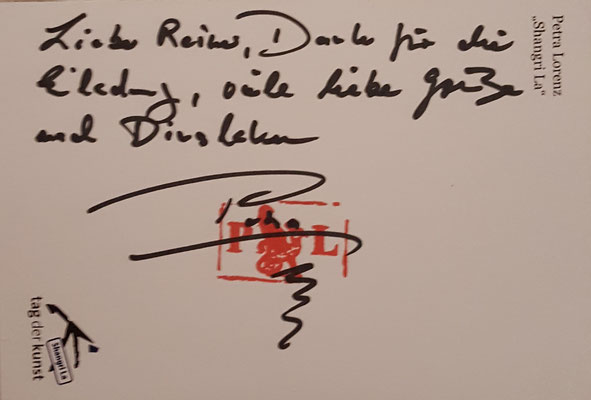 Lieber Reiner, Danke für die
Eiladung, viele liebe Grüße
nach Dinslaken
Petra
P L
Petra Lorenz
„Shangri La“
Shangri La
tag der kunst